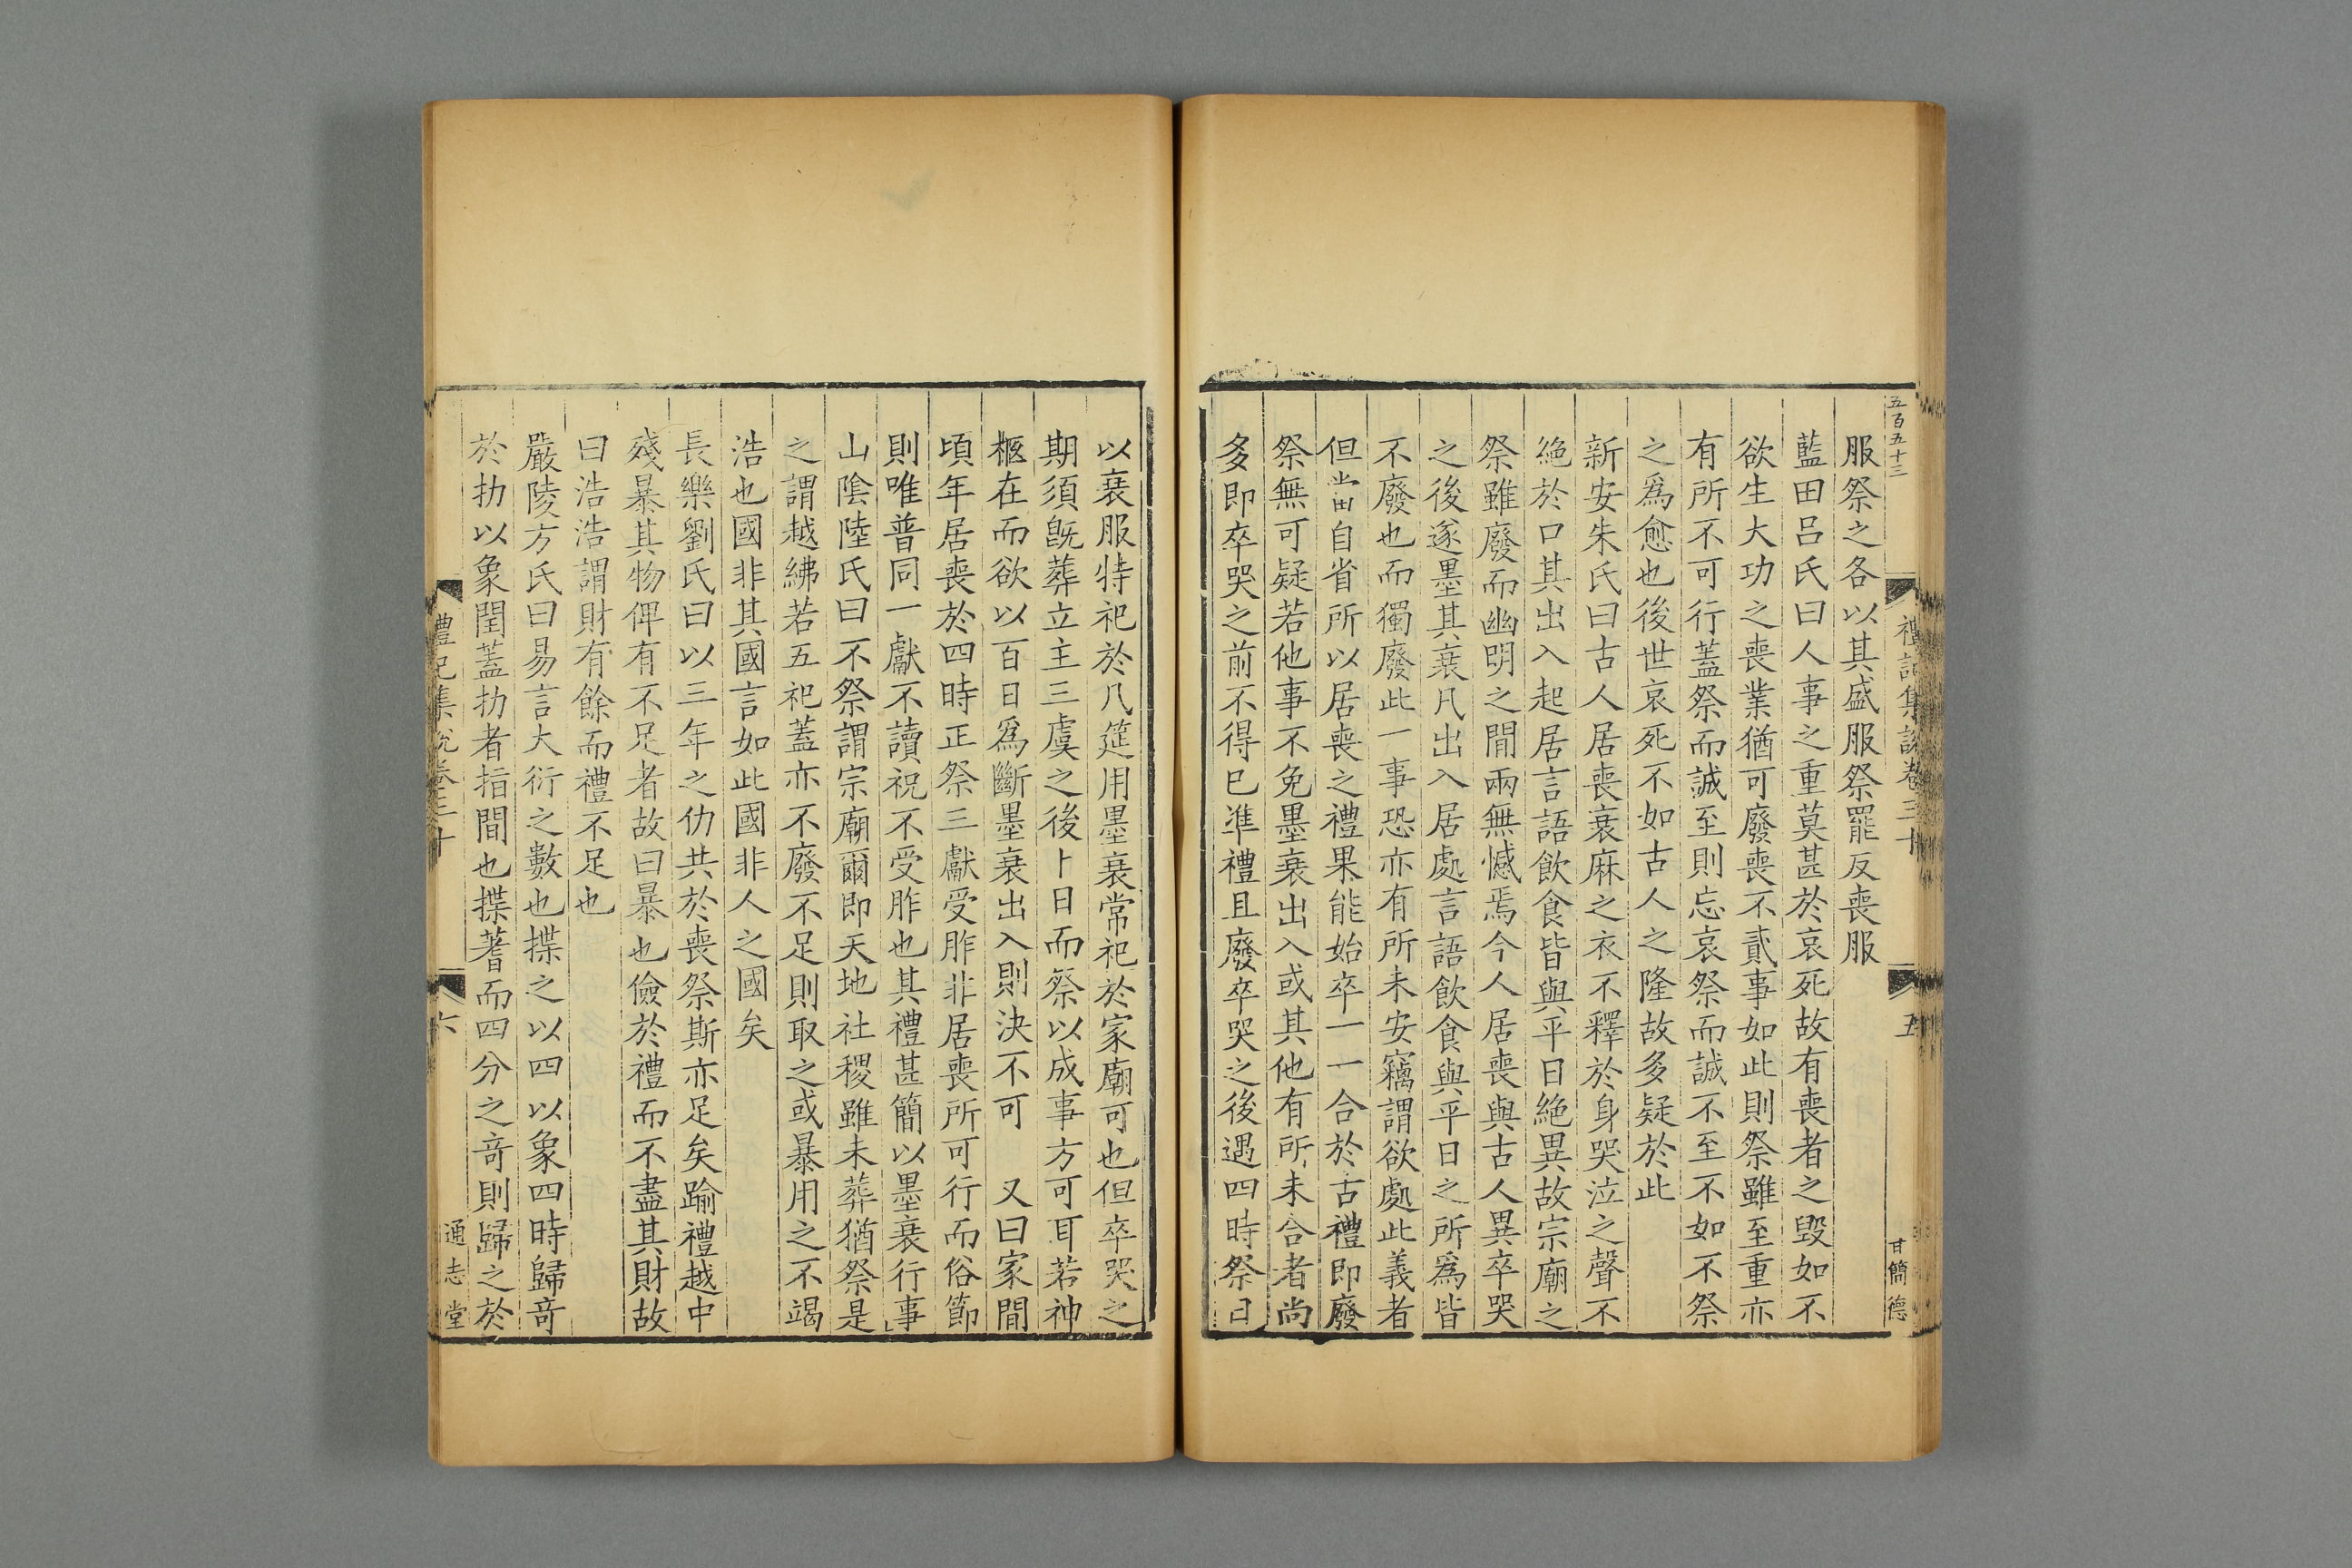 五百五十三
禮記集說卷三十
五
甘簡德
服祭之各以其盛服祭罷反喪服
藍田呂氏曰人事之重莫甚於哀死故有喪者之毀如不
欲生大功之喪業猶可廢喪不貳事如此則祭雖至重亦
有所不可行蓋祭而誠至則忘哀祭而誠不至不如不祭
之爲愈也後世哀死不如古人之隆故多疑於此
新安朱氏曰古人居喪衰麻之衣不釋於身哭泣之聲不
絕於口其出入起居言語飲食皆與平日絕異故宗廟之
祭雖廢而幽明之間兩無憾焉今人居喪與古人異卒哭
之後遂墨其衰凡出入居處言語飲食與平日之所爲皆
不廢也而獨廢此一事恐亦有所未安竊謂欲處此義者
但當自省所以居喪之禮果能始卒一一合於古禮即廢
祭無可疑若他事不免墨衰出入或其他有所未合者尚
多即卒哭之前不得已準禮且廢卒哭之後遇四時祭日
以衰服特祀於几筵用墨衰常祀於家廟可也但卒哭之
期須旣葬立主三虞之後卜日而祭以成事方可耳若神
柩在而欲以百日爲斷墨衰出入則決不可　又曰家間
頃年居喪於四時正祭三獻受胙非居喪所可行而俗節
則唯普同一獻不讀祝不受胙也其禮甚簡以墨衰行事
山陰陸氏曰不祭謂宗廟爾即天地社稷雖未葬猶祭是
之謂越紼若五祀蓋亦不廢不足則取之或暴用之不竭
浩也國非其國言如此國非人之國矣
長樂劉氏曰以三年之仂共於喪祭斯亦足矣踰禮越中
殘暴其物俾有不足者故曰暴也儉於禮而不盡其財故
曰浩浩謂財有餘而禮不足也
嚴陵方氏曰易言大衍之數也揲之以四以象四時歸奇
於扐以象閏蓋扐者指間也揲蓍而四分之奇則歸之於
禮記集說卷三十
六
通志堂